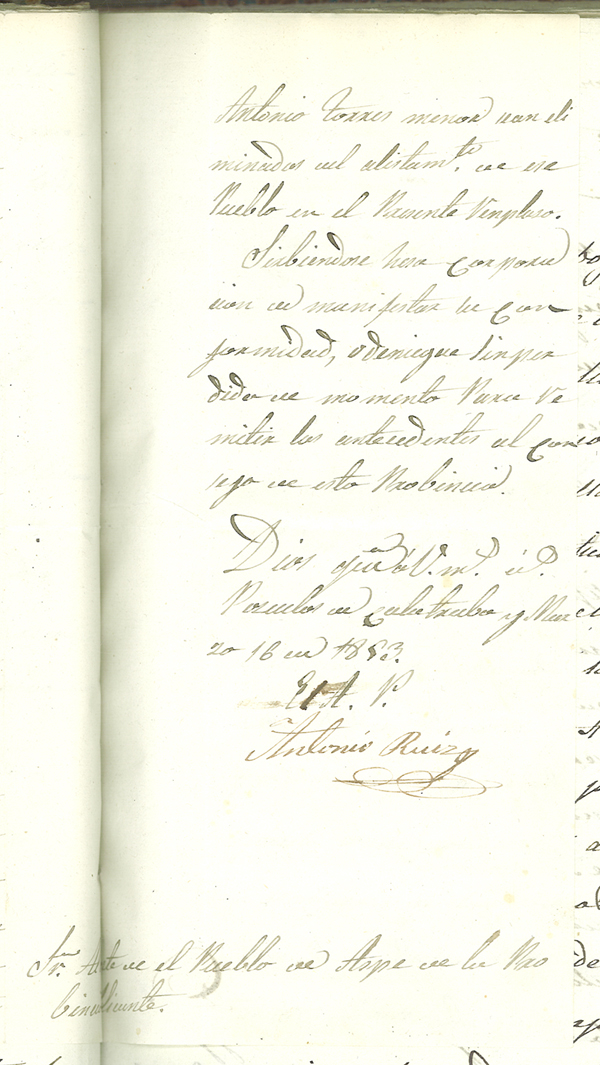 Antonio Torres menor sean eli
minados del alistam.to de ese
Pueblo en el Presente Renplaso.
Sirbiendose hesa Corpora
cion de manifestar su Con
formidad, o deniegue sin per
dida de momento Para Re
mitir los antecedentes al Con
sego de esta Probincia.
Dios gue á V. m.s a.s
Pozuelos de Calatraba y Mar
zo 16 de 1853.
El A. P.
Antonio Ruiz
Sr. Alcte de el Pueblo de Aspe de la Pro
bin Alicante.